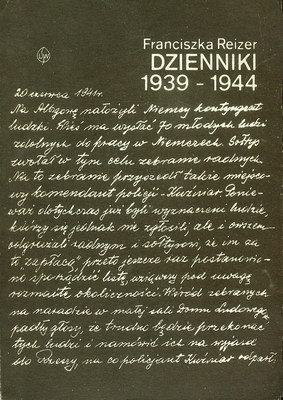 LSW
Franciszka Reizer
DZIENNIKI
1939 - 1944
20 czerwca 1941 r.
Na Albigowę nałożyli Niemcy kontyngent
ludzki. Wieś ma wysłać 70 młodych ludzi
zdolnych do pracy w Niemczech. Sołtys
zwołał w tym celu zebranie radnych.
Na to zebranie przyszedł także miejsco-
wy komendant policji - Kuźniar. Ponie-
waż dotychczas już byli wyznaczeni ludzie,
którzy się jednak nie zgłosili, ale i owszem
odgrażali radnym i sołtysowi, że im za
to "zapłacą" przeto jeszcze raz postanowio-
no sporządzić listę, wziąwszy pod uwagę
rozmaite okoliczności. Wśród zebranych
na naradzie w małej sali Domu Ludowego
padły głosy, że trudno będzie przekonać
tych ludzi i namówić ich na wyjazd
do Rzeszy, na co policjant Kuźniar odparł: